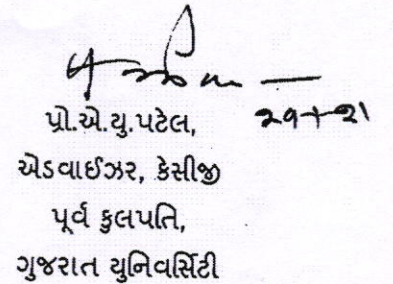 પ્રો.એ.યુ.પટેલ,
એડવાઈઝર, કેસીજી
પૂર્વ કુલપતિ,
ગુજરાત યુનિવર્સિટી